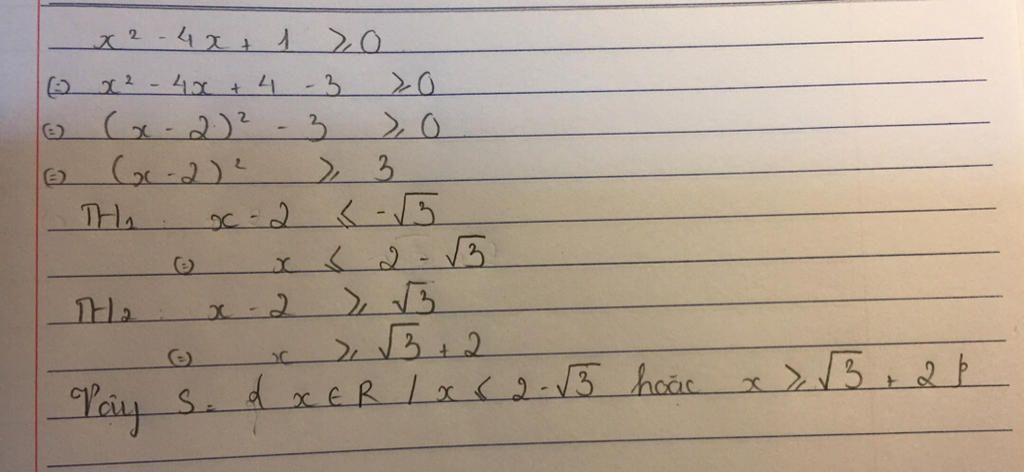 x² - 4x + 1 ⩾ 0
(=) x² - 4x + 4 - 3 ⩾ 0
(=) (x - 2)² - 3 ⩾ 0
(=) (x - 2)² ⩾ 3
TH1 : x - 2 ⩽ -√3
(=) x ⩽ 2 - √3
TH2 : x - 2 ⩾ √3
(=) x ⩾ √3 + 2
Vậy S = { x ∈ R / x ⩽ 2 - √3 hoặc x ⩾ √3 + 2 }